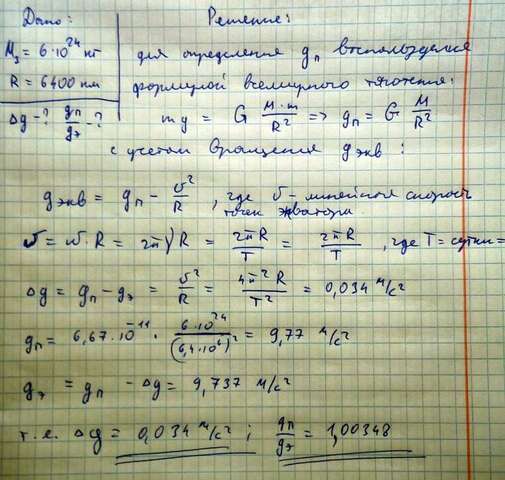 Дано:
M₃ = 6·10²⁴ кг
R = 6400 км
Δg - ? gп/gэ - ?
Решение:
для определения gп воспользуемся
формулой всемирного тяготения:
mg = G M·m/R² => gп = G M/R²
с учетом вращения gэкв:
gэкв = gп - υ²/R, где υ - линейная скорость
точек экватора.
υ = ω·R = 2πνR = 2πR/T = 2πR/T, где T = сутки =
Δg = gп - gэ = υ²/R = 4π²R/T² = 0,034 м/с²
gп = 6,67·10⁻¹¹· 6·10²⁴/(6,4·10⁶)² = 9,77 м/с²
gэ = gп - Δg = 9,737 м/с²
т.е. Δg = 0,034 м/с² ; gп/gэ = 1,00348